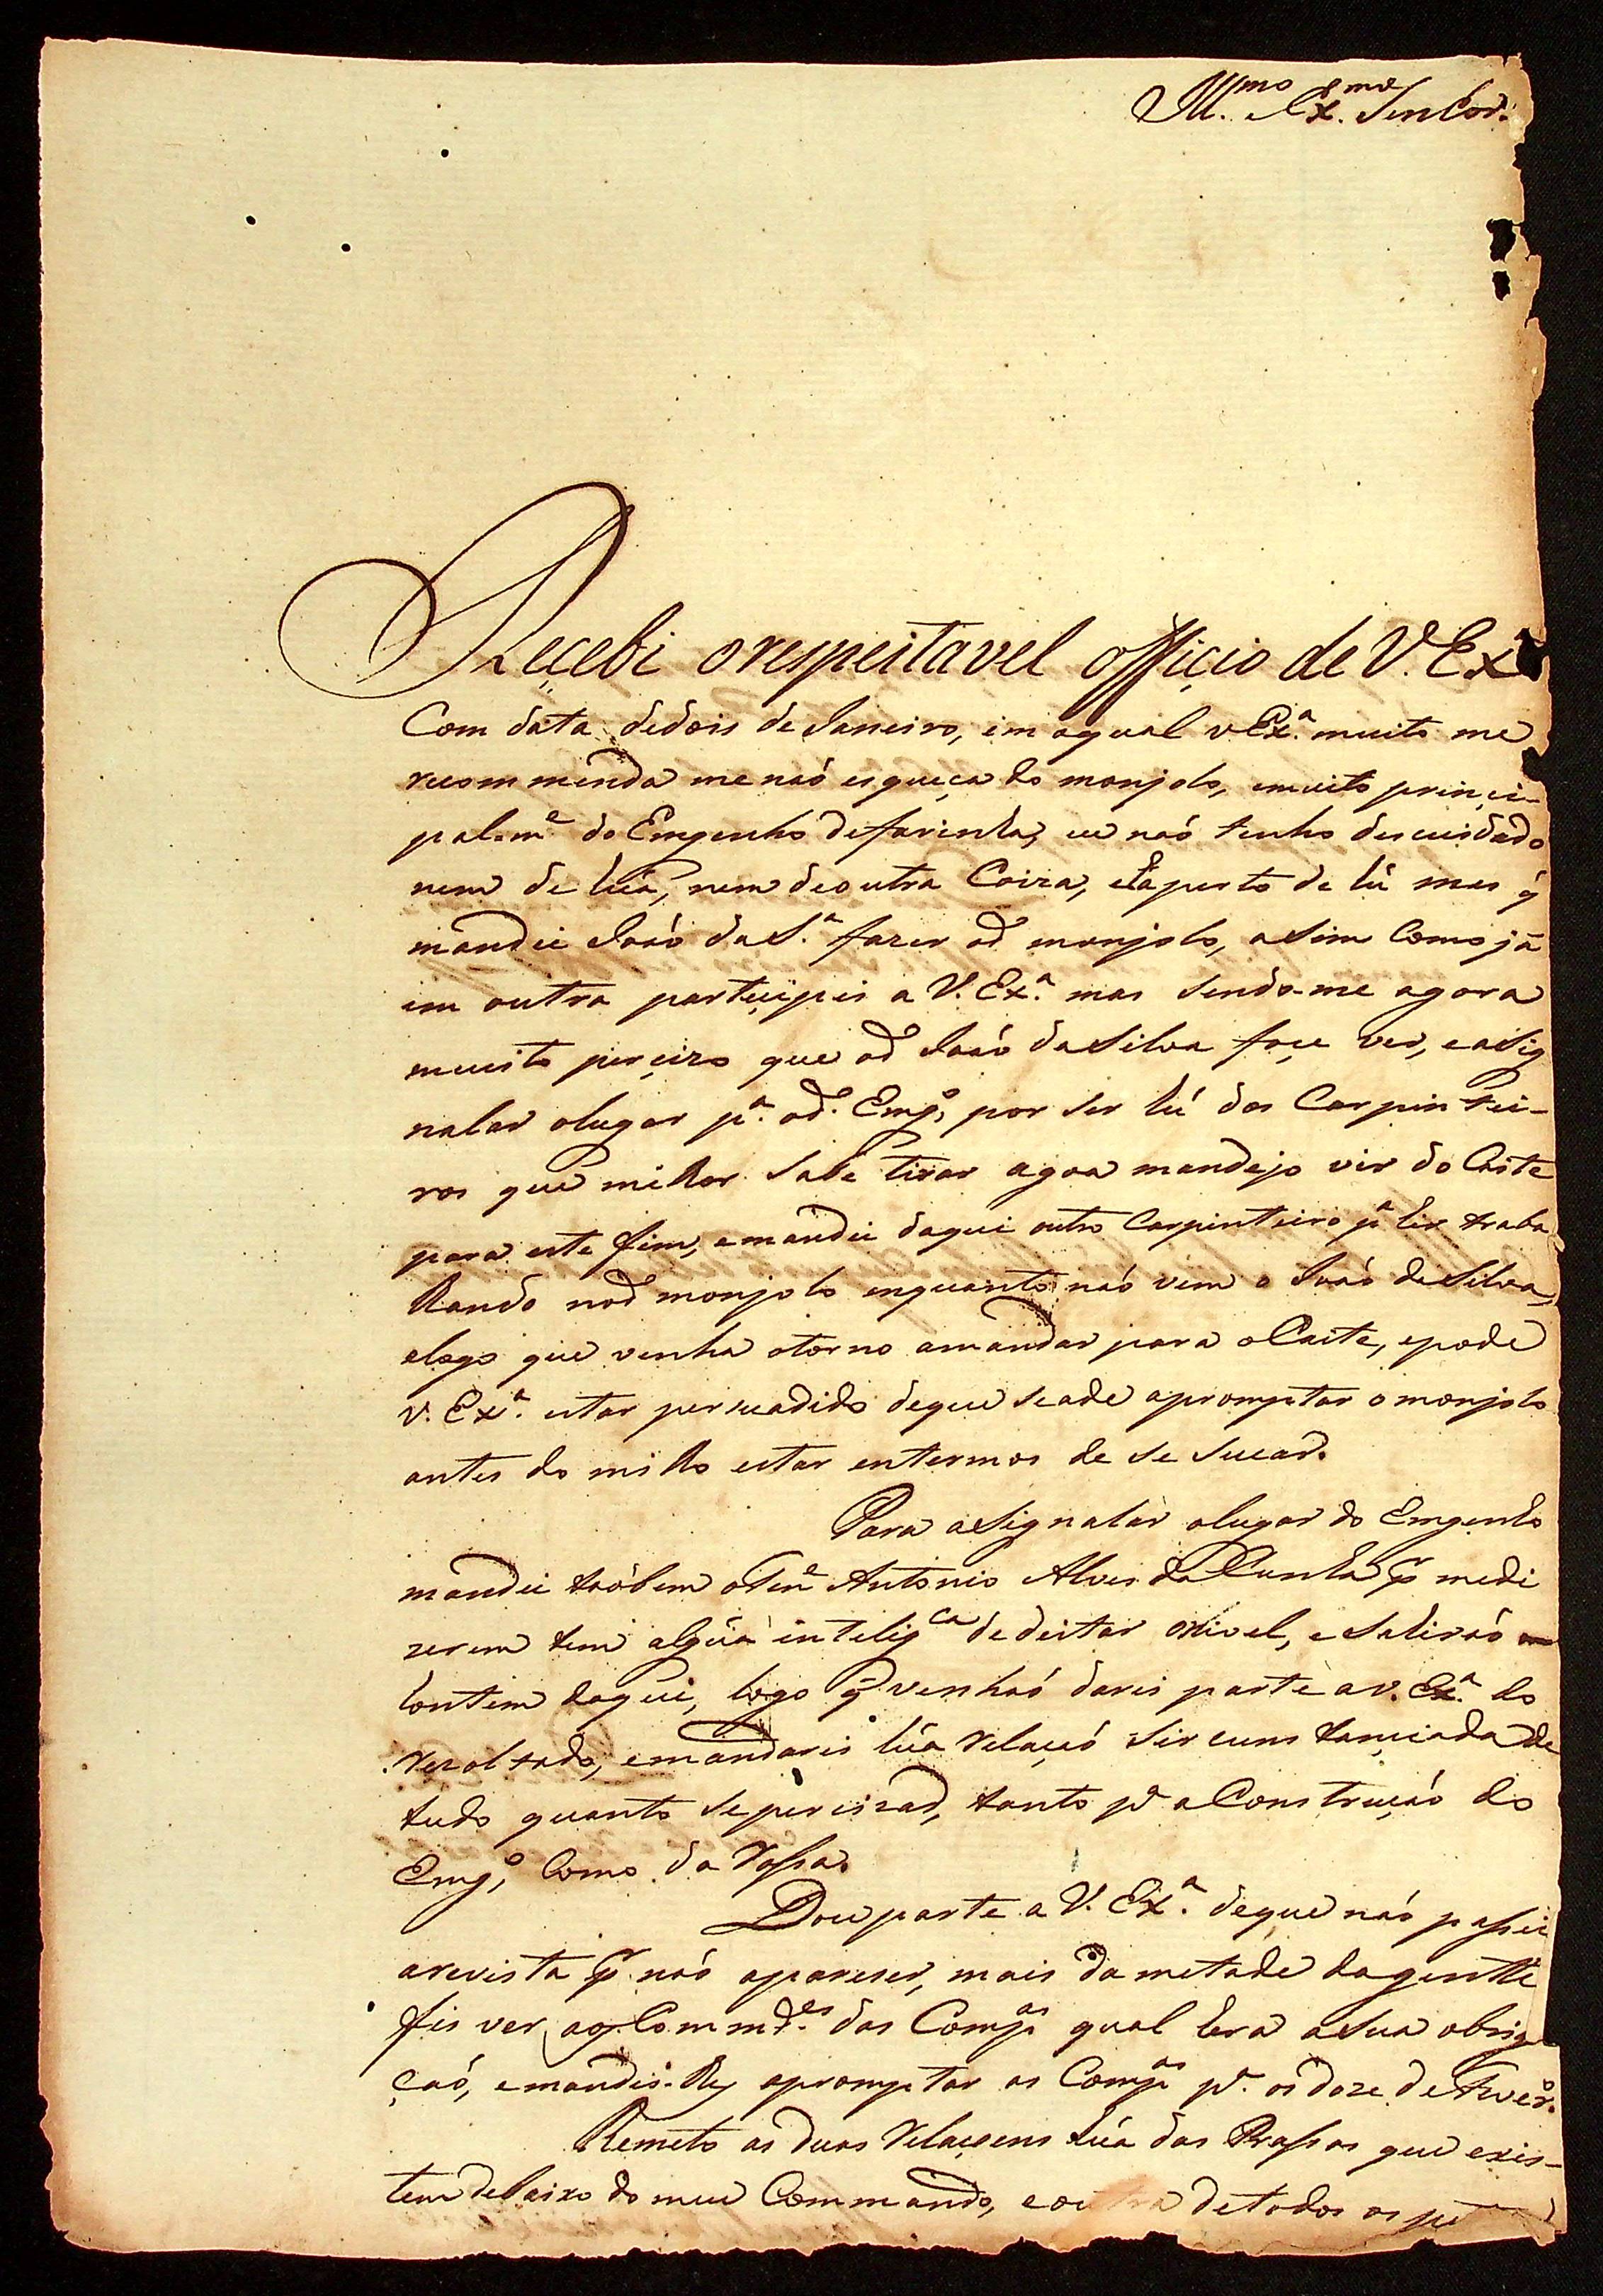 Ill.mo e Ex.mo Senhor.
Recebi o respeitavel officio de V. Ex
Com data dedois de Janeiro, em aqual v Ex.a muito me
recommenda me naó esqueça do monjolo, emuito princi-
palm.e do Emgenho defarinha, eu naó tenho descuidado
nem de húa, nem deoutra Coiza, e perto de hú mes q̃
mandei Joaó da S.a fazer od.o monjolo, asim Como já
em outra partecipei a V. Ex.a mas sendo-me agora
muito percizo que od.o Joaó da Silva foçe ver, easig
nalar olugar p.a od.o Emg.o, por ser hú dos Carpintei-
ros que milhor sabe tirar agoa mandejo vir do Caite
para este fim, emandei daqui outro Carpinteiro p.a hir traba
lhando nod.o monjolo enquanto naó vem o Joaó da Silva,
elogo que venha otorno amandar para oCaite, epode
V. Ex.a estar persuadido deque seade apromptar o monjolo
antes do milho estar entermos de se secar.
Para asignalar olugar do Emgenho
mandei taóbem oTen.e Antonio Alves da Cunha p.r medi
zerem tem algúa intelig.ca dedeitar onivel, e sahiraó
hontem daqui, logo q̃ venhaó darei parte a V. Ex.a do
rezoltado, emandarei húa relaçaó sircumstanciada de
tudo quanto sepercizar, tanto p.a aConstruçaó do
Emg.o, Como da Rossa.
Dou parte a V. Ex.a deque naó passei
arevista p.r naó apareser, mais da metade dagente
fis ver aos Commd.es das Comp.as qual hera asua obriga
çaó, emandei-lhes apromptar as Comp.as p.a os doze de Fever.o
Remeto as duas relaçoens húa das Prassas que exis-
tem debaixo do meu Commando, eoutra detodos os